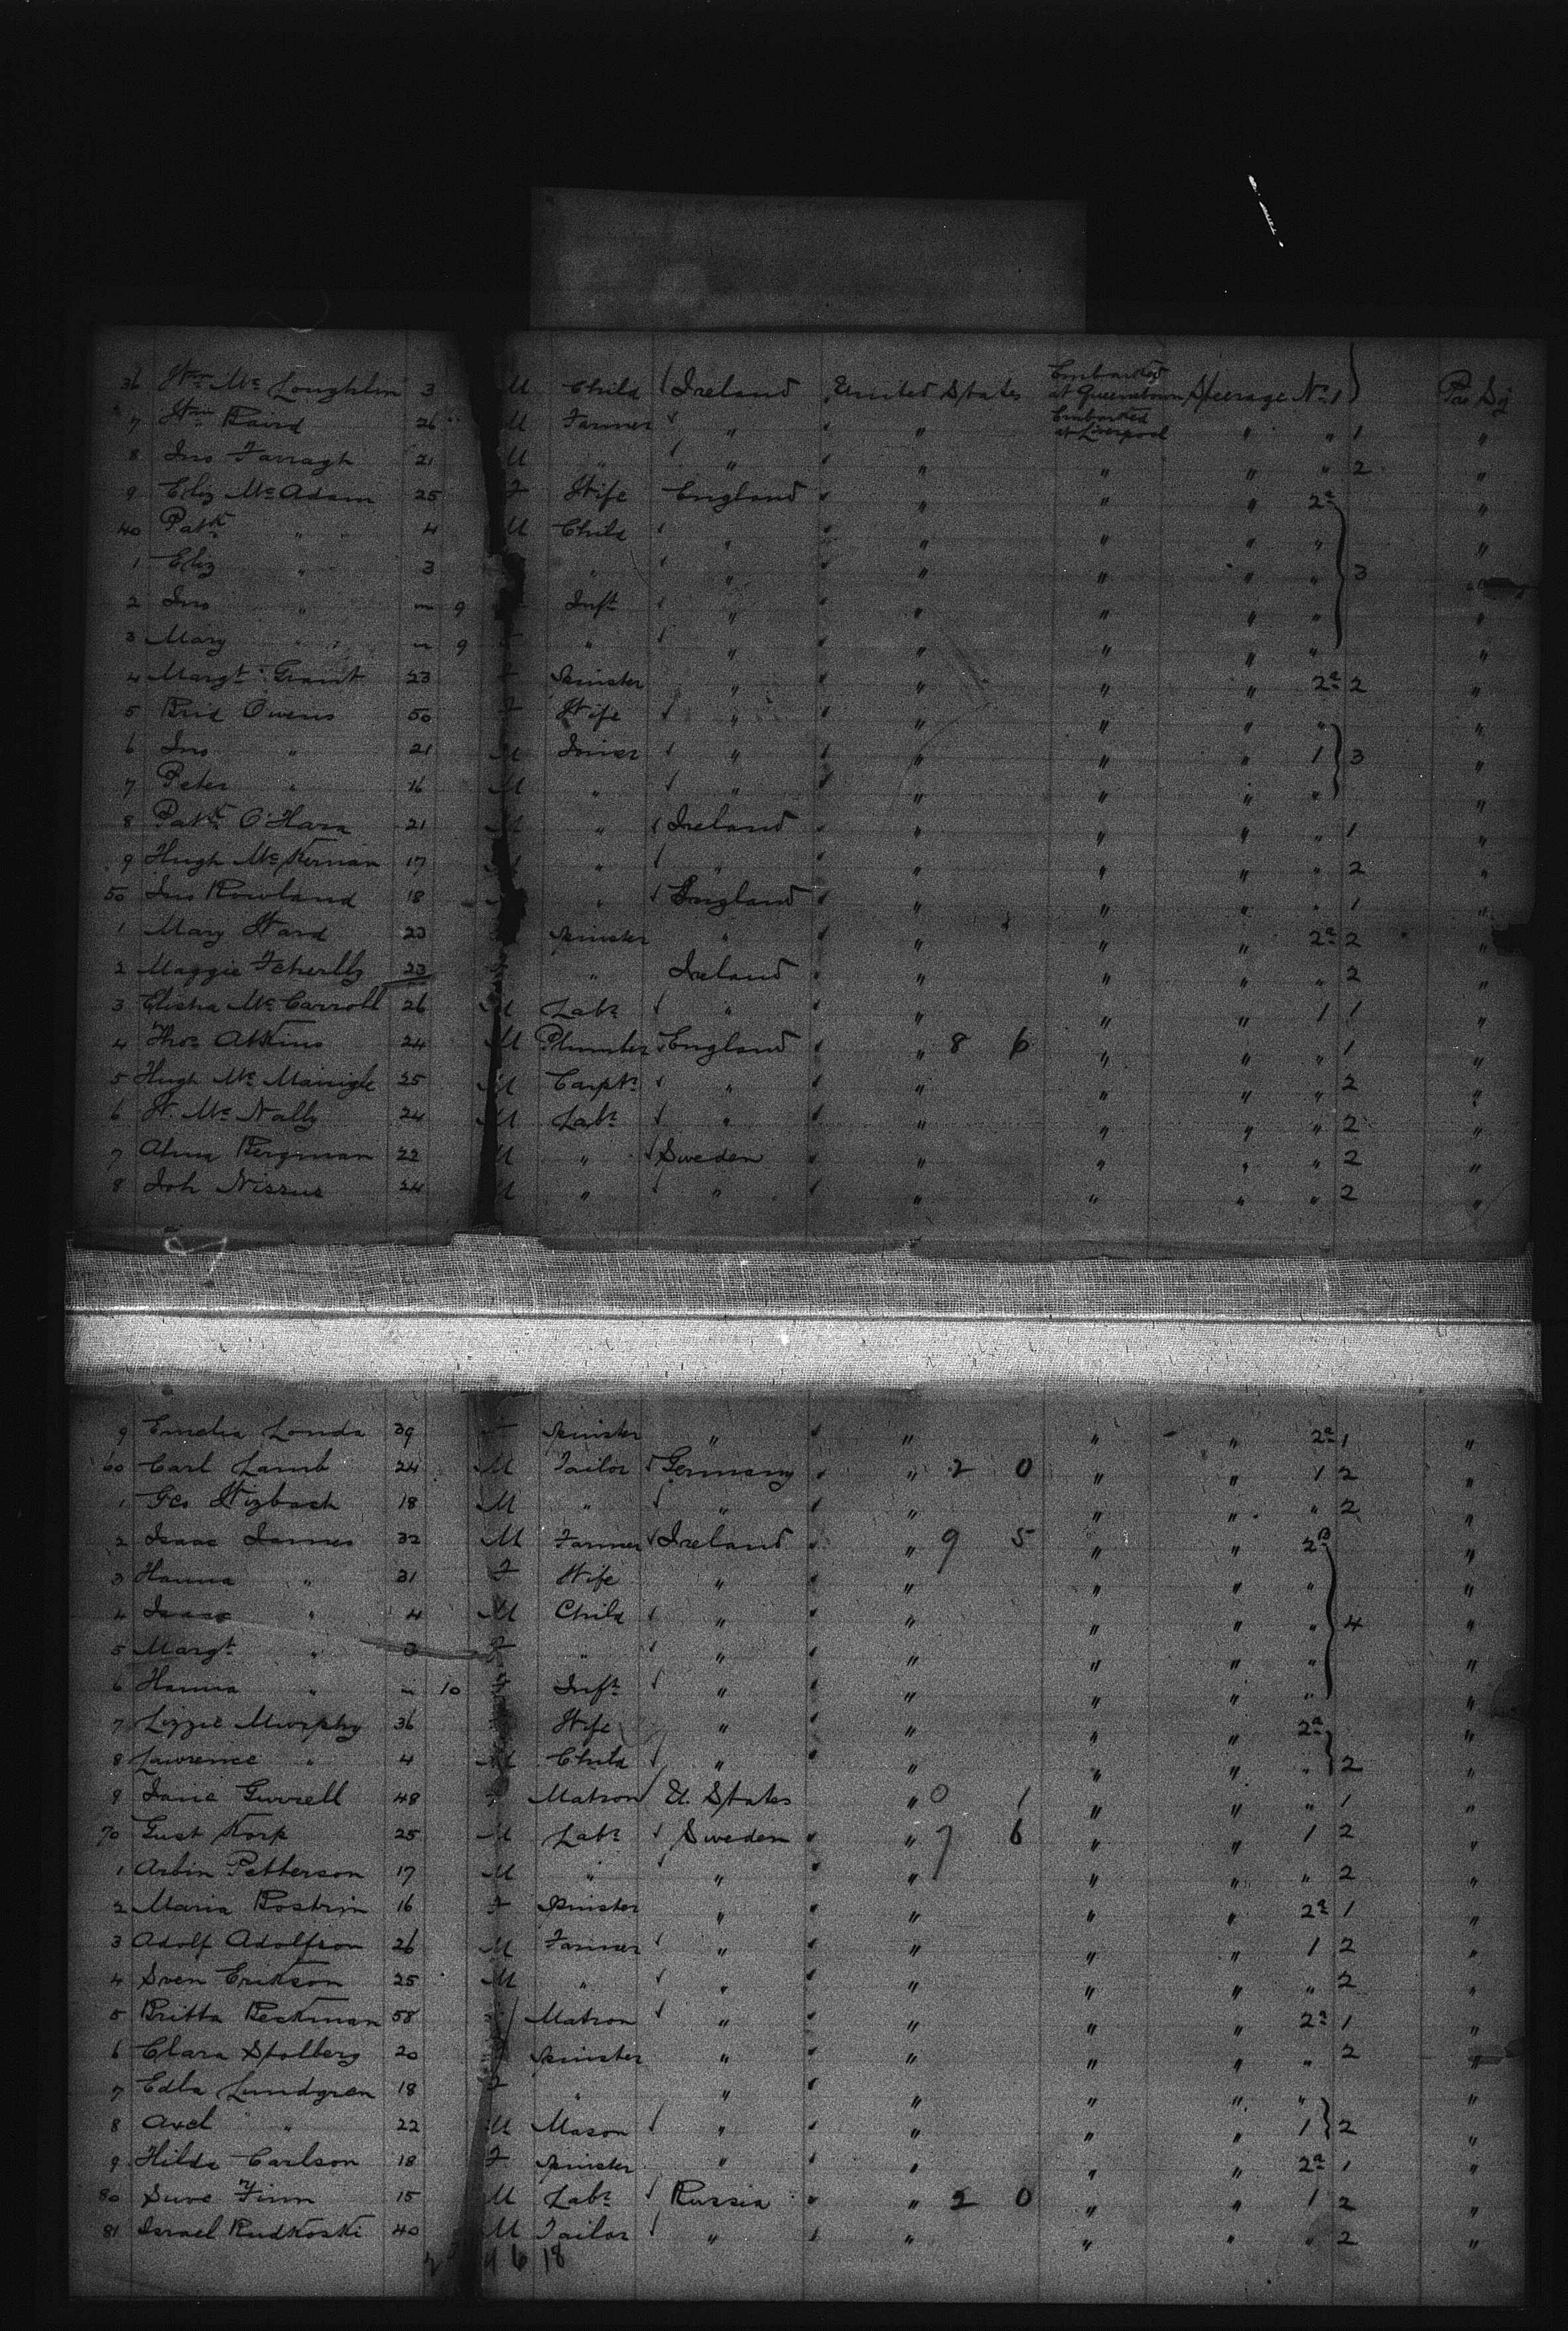 36 Wm Mc Loughlin 3 M Child Ireland United States Embarked at Queenstown Steerage No 1
7 Wm Baird 26 M Farmer " " Embarked at Liverpool " " 1 "
8 Jno Farragh 21 M " " " " " " 2 "
9 Eliz Mc Adam 25 F Wife England " " " 2a "
40 Patk " 4 M Child " " " " " "
1 Eliz " 3 " " " " " " 3
2 Jno " 9 Inft " " " " "
3 Mary " 9 " " " " " " "
4 Margt Grant 23 F Spinster " " " " 2a 2 "
5 Brid Owens 50 F Wife " " " " " "
6 Jno " 21 M Joiner " " " " 1 3 "
7 Peter " 16 M " " " " " " "
8 Patk O'Hara 21 M " Ireland " " " " 1 "
9 Hugh Mc Kernan 17 " " " " " " 2 "
50 Jno Rowland 18 " England " " " " 1 "
1 Mary Ward 23 Spinster " " " " 2a 2 "
2 Maggie 23 F " Ireland " " " " 2 "
3 Elisha Mc Carroll 26 M Labr " " " " 1 1 "
4 Thos Atkins 24 M Plumber England " 8 6 " " " 1 "
5 Hugh Mc 25 M Carptr " " " " " 2 "
6 W. Mc Nally 24 M Labr " " " " " 2 "
7 Bergman 22 M " Sweden " " " " 2 "
8 Joh 24 M " " " " " " 2 "
9 Emelia Londa 39 Spinster " " " " 2a 1 "
60 Carl Lamb 24 M Tailor Germany " 2 0 " " 1 2 "
1 Geo 18 M " " " " " " 2 "
2 Isaac James 32 M Farmer Ireland " 9 5 " " 2B "
3 Hanna " 31 F Wife " " " " " "
4 Isaac " 4 M Child " " " " " 4 "
5 Margt " F " " " " " " "
6 Hanna " 10 F Inft " " " " " "
7 Lizzie Murphy 36 Wife " " " " 2a "
8 Lawrence " 4 M Child " " " " " 2 "
9 Jane Gurrell 48 F Matron U. States " 0 1 " " " 1 "
70 Gust Korp 25 M Labr Sweden " 7 6 " " 1 2 "
1 Arbin Petterson 17 M " " " " " " 2 "
2 Maria 16 F Spinster " " " " 2a 1 "
3 Adolf Adolfson 26 M Farmer " " " " 1 2 "
4 Sven Erikson 25 M " " " " " " 2 "
5 Britta Beckman 58 Matron " " " " 2a 1 "
6 Clara Stolberg 20 Spinster " " " " " 2 "
7 Edla Lundgren 18 F " " " " " "
8 Axel " 22 M Mason " " " " 1 2 "
9 Hilda Carlson 18 F Spinster " " " " 2a 1 "
80 Finn 15 M Labr Russia " 2 0 " " 1 2 "
81 Israel Rudkoski 40 M Tailor " " " " " 2 "